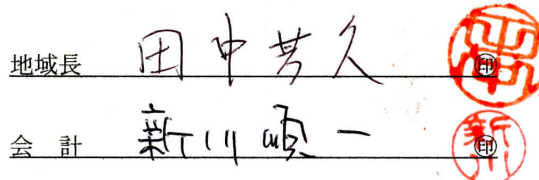 地域長 田中芳久 ㊞
会計 新川順一 ㊞ 新川